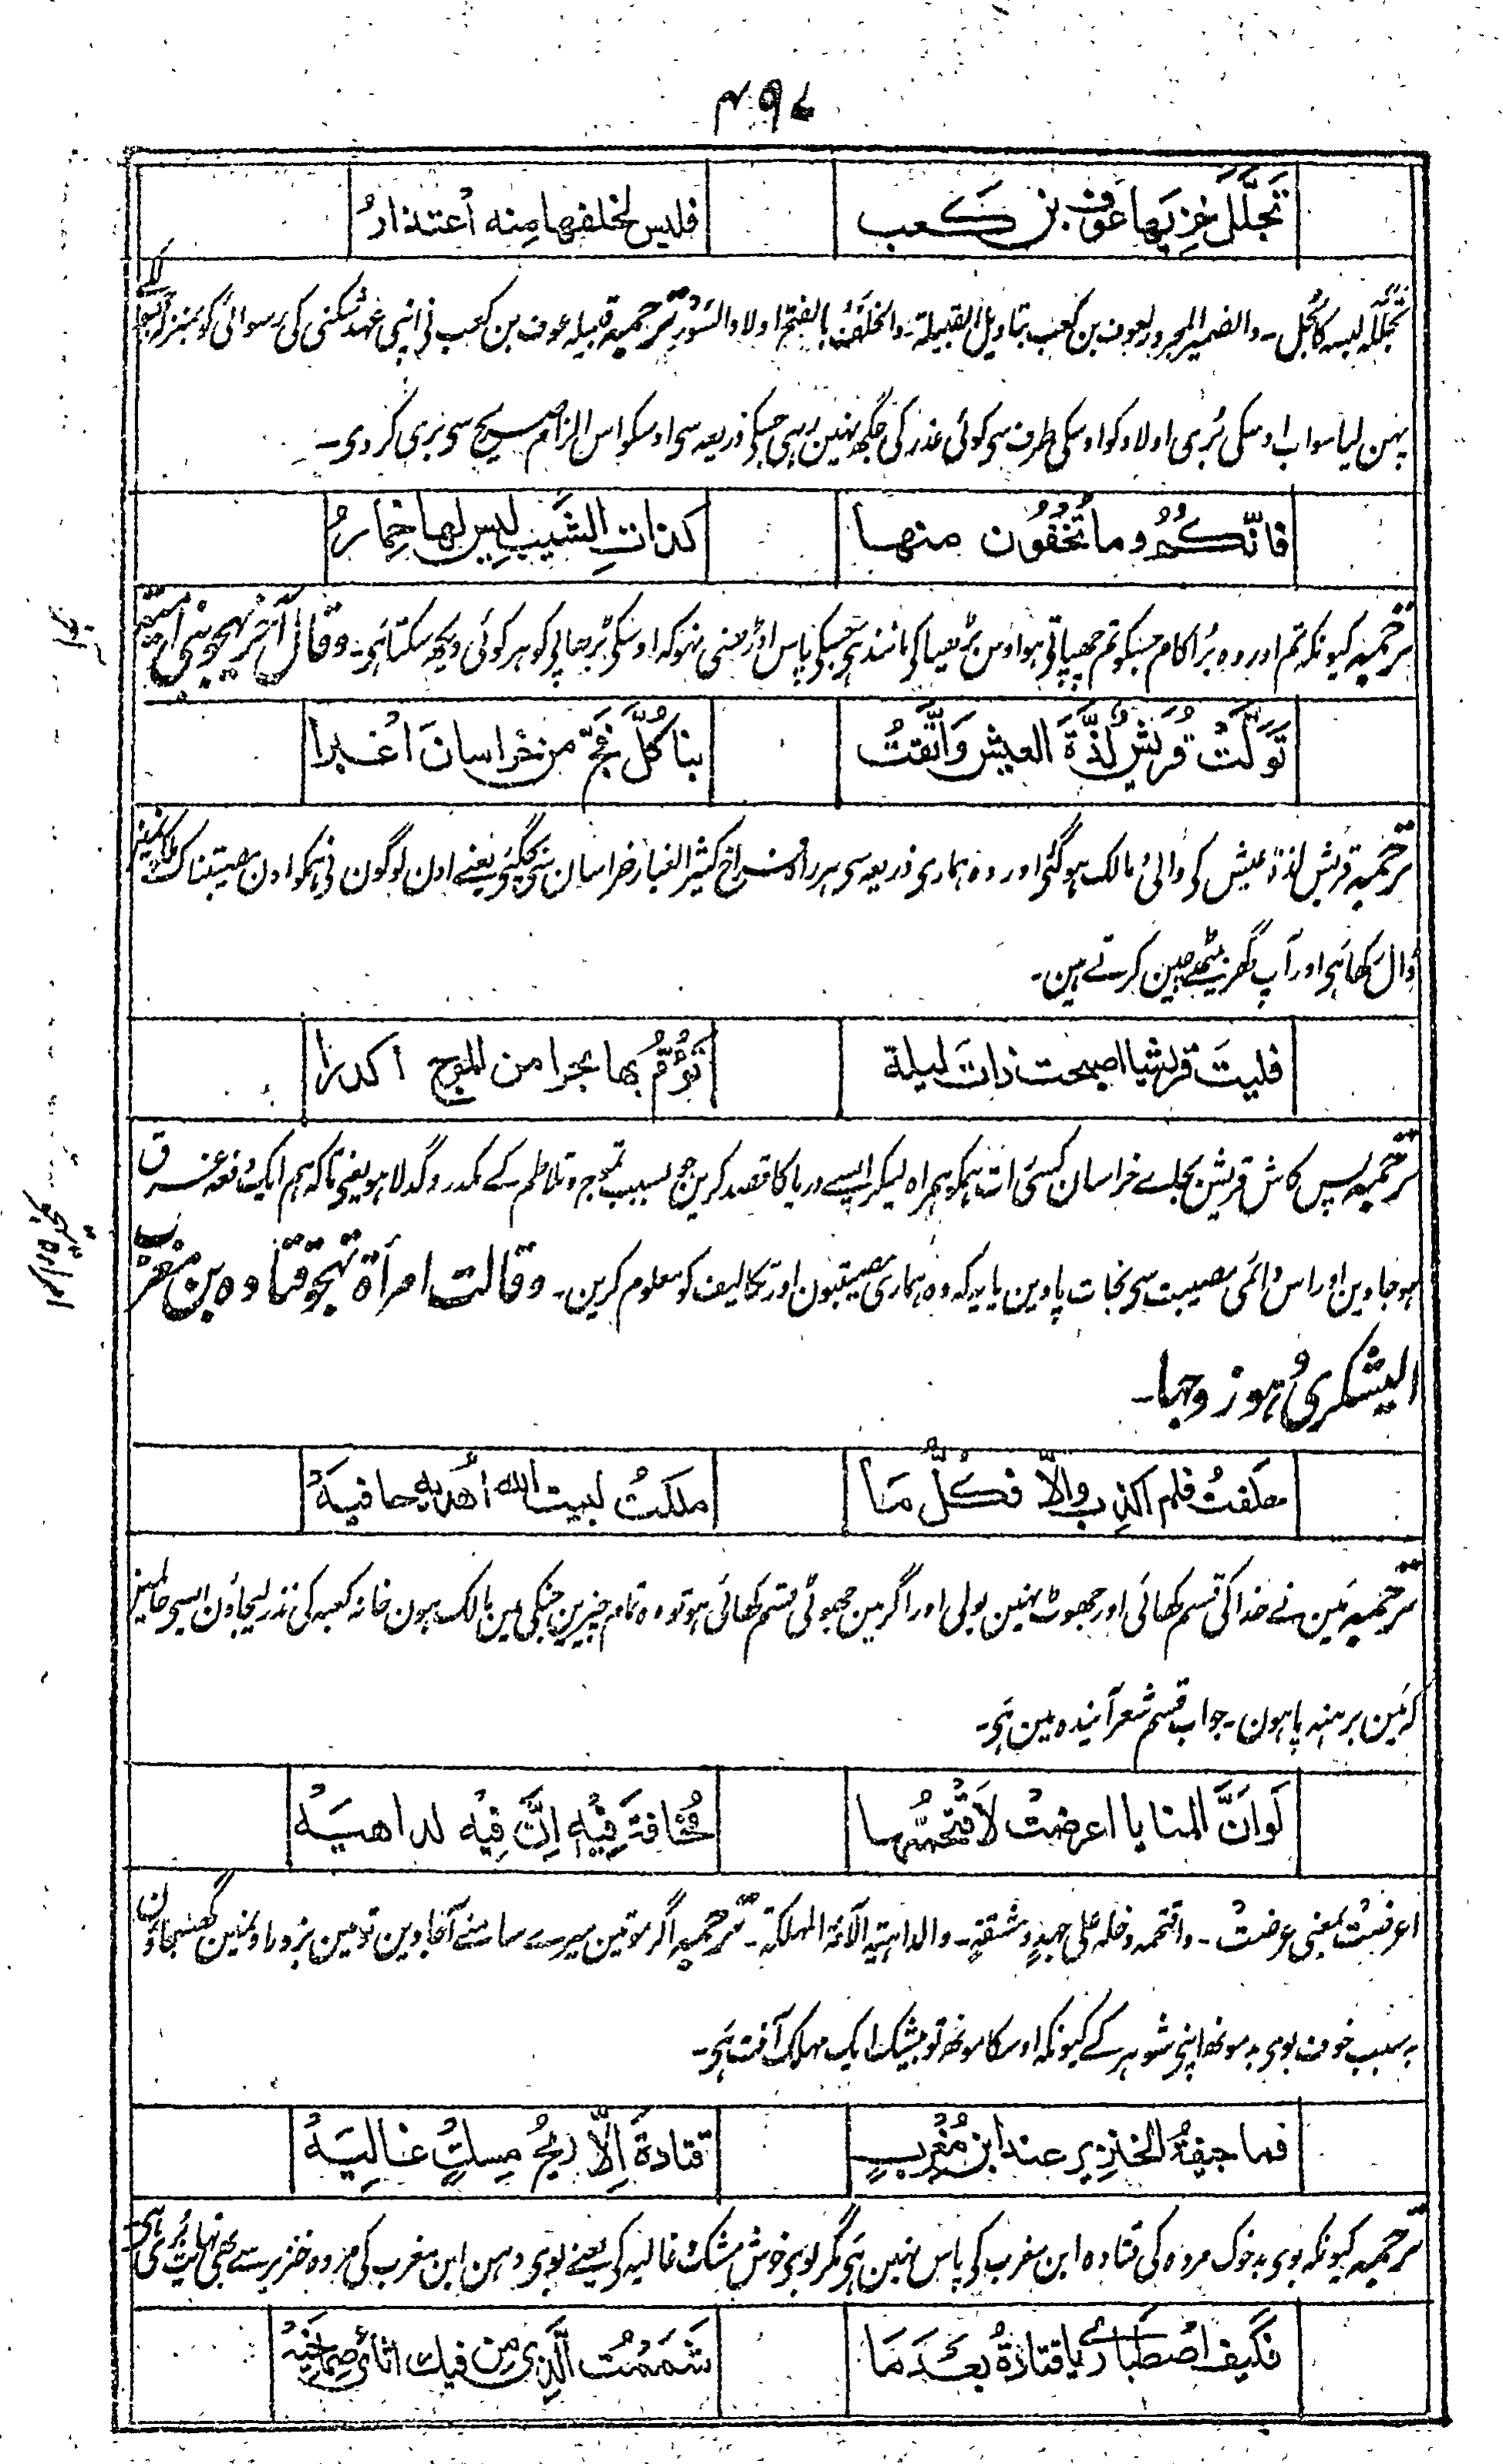 ۴۹۷
تَجَلَّلَ خِزيَها عَوف بن كَعب فليس لخلفها مِنه اُعتذارُ
تجلّله لبسه كالجُل۔ والضمير المجرور لعوف بن كعب بتاويل القبيلة۔ والخَلَفُ بالفتح اولاد السَوْء ترجمہ قبیلہ عوف بن کعب نی اپنی عہد شکنی کی رسوائی کو بمنزلہ
پہن لیا سو اب اوسکی بُری اولاد کو اوسکی طرف سی کوئی عذر کی جگہ نہین رہی جسکی ذریعہ سی اوسکو اس الزام صریح سی بری کر دی۔
فانّكُمُ وما تُخْفُون منها كذاتِ الشَيب ليس لها خِمارُ
ترجمہ کیونکہ تم اور وہ بُرا کام جسکو تم چھپاتی ہو اوس بڑھیا کی مانند ہی جسکی پاس اوڑھنی نہو کہ اوسکی بڑھاپی کو ہر کوئی دیکھ سکتا ہی۔ وقال آخر يهجو بنی اميّة
تَوَلَّتْ قُرَيشٌ لَذَّةَ العيش وَاتَّقتْ بنا كُلَّ فَجٍّ من خراسانَ اَغْبرا
ترجمہ قریش لذة عیش کی والی و مالک ہوگئی اور وہ ہماری ذریعہ سی ہر راہ فراخ کثیر الغبار خراسان سی بچگئی یعنے اون لوگون نی ہمکو اون مصیبتناک ملکونمین
ڈال رکھا ہی اور آپ گھر بیٹھے چین کرتے ہین۔
فليتَ قريشا اصبحت ذاتَ ليلة تَؤُمُّ بها بحرا من الموج اكدرا
ترجمہ پس کاش قریش بجاے خراسان کسی رات ہمکو ہمراہ لیکر ایسے دریا کا قصد کرین جو بسبب تموج و تلاطم کے مکدر و گدلا ہو یعنی تاکہ ہم ایک دفعہ غرق
ہو جاوین اور اس دائمی مصیبت سی نجات پاوین یا یہ کہ وہ ہماری مصیبتون اور تکالیف کو معلوم کرین۔ وقالت امرأة تهجو قتادة بن مغرّب
اليشكرىّ وهو زوجها۔
حلفتُ فلم اكذِب والّا فكُلُّ مَا ملكتُ لبيت الله اُهديهِ حافيَهْ
ترجمہ مَین نے خدا کی قسم کھائی اور جھوٹ نہین بولی اور اگر مین جھوٹی قسم کھائی ہو تو وہ تمام چیزین جنکی مین مالک ہون خانہ کعبہ کی نذر لیجاؤن ایسی حالمین
کہ مَین برہنہ پا ہون۔ جواب قسم شعر آیندہ مین ہی۔
لَواَنَّ المنايا اعرضتْ لاَقْتحمتُها مخافةَ فِيْهِ اِنَّ فِيْه لداهيَهْ
اعرضتْ بمعنی عرضتْ۔ واقتحمه دخله علی جهدٍ ومشقةٍ۔ والداهية الآفة المهلكة۔ ترجمہ اگر موتین میرے سامنے آجاوین تو مین بزور اونمین گھسجاؤن
بہ سبب خوف بوی بد مونھ اپنی شوہر کے کیونکہ اوسکا مونھ تو بیشک ایک مہلک آفت ہی۔
فما جيفةُ الخنزير عند ابن مُغْرِبٍ قتادةَ اِلّا ريحُ مِسكٍ غالِيَهْ
ترجمہ کیونکہ بوی بد خوک مردہ کی قتادہ ابن مغرب کی پاس نہین ہی مگر بوی خوش مشک غالیہ کی یعنے بوی دہن ابن مغرب کی مردہ خنزیر سے بھی نہایت بُری ہی
فكيف اصْطباری يا قتادةُ بعدَمَا شَمَمْتُ الَّذی مِن فيك اثأی صِماخيَهْ